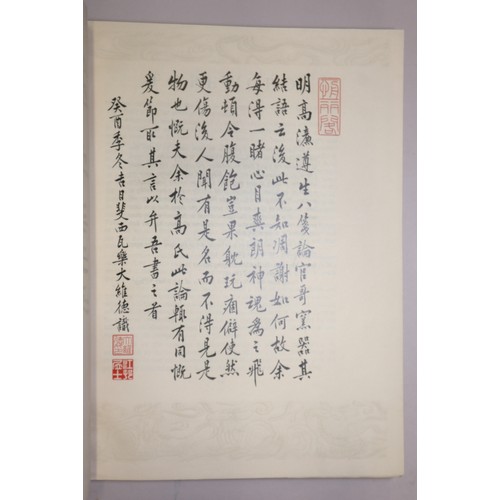 明高濂遵生八箋論官哥窯器其
結語云後此不知凋謝如何故余
每得一睹心目真朗神魂為之飛
動頓令腹飽豈果躭玩痼僻使然
更傷後人聞有是名而不得見是
物也慨夫余於高氏此論頗有同慨
爰節取其言以弁吾書之首
癸酉季冬吉日斐西瓦樂大維德識